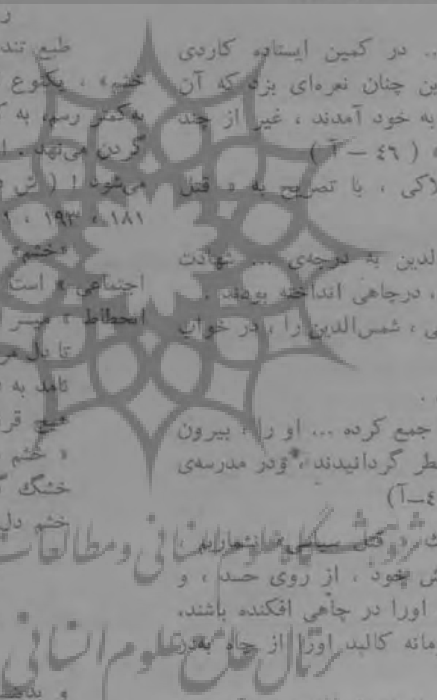 .. در کمین ایستاده کاردی
ین چنان نعره‌ای بزد که آن
به خود آمدند ، غیر از چند
( ٤٦ – آ )
لاکی ، با تصریح به « قتل
الدین به درجه‌ی ... شهادت
، درچاهی انداخته بودند .
ی ، شمس‌الدین را ، در خواب
.
جمع کرده ... او را ، بیرون
طر گردانیدند ، و در مدرسه‌ی
٤–آ)
« قتل سیاسی » انگاریم ،
ش بخود ، از روی حسد ، و
اورا در چاهی افکنده باشند.
مانه کالبد اورا از چاه بدر
ر
طبع تند
خشم» ، یکنوع
به‌کمتر رسم، به ک
گردن می‌نهد . ا
می‌شود ! ( ش
۱۸۱ ، ۱۹۳ ، ۱
«خشم»
اجتماعی » است
انحطاط » میسر ا
تا دل مر
نامد به
هیچ قر
« خشم
خشک گ
خشم دل
« بدبخـ
پژوهشگاه علوم انسانی و مطالعات
رتال جامع علوم انسانی